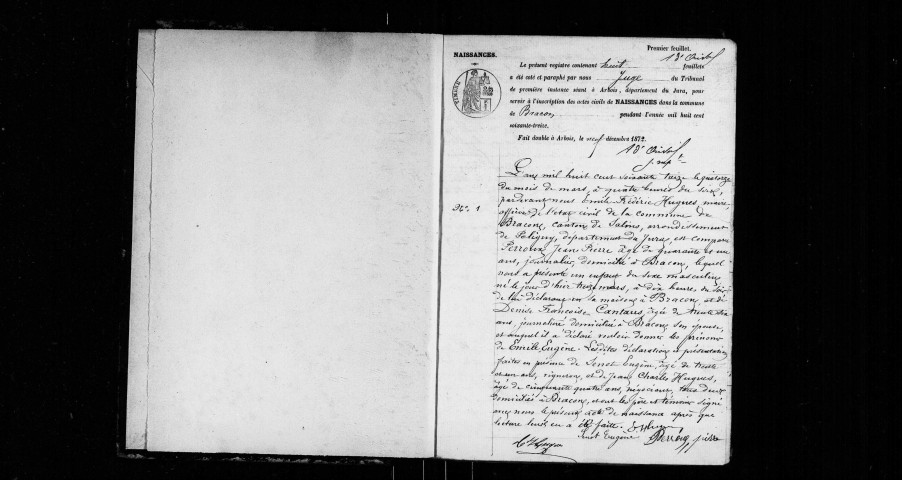 Premier feuillet.
NAISSANCES.
Le présent registre contenant huit feuillets
a été coté et paraphé par nous Juge du Tribunal
de première instance séant à Arbois, département du Jura, pour
servir à l'inscription des actes civils de NAISSANCES dans la commune
de Bracon pendant l'année mil huit cent
soixante-treize.
Fait double à Arbois, le neuf décembre 1872.
TIMBRE
No. 1
L'an mil huit cent soixante treize le quatorze
du mois de mars, à quatre heures du soir,
pardevant nous Emile Frédéric Hugues, maire
officier de l'état civil de la commune de
Bracon, canton de Salins, arrondissement
de Poligny, département du Jura, est comparu
Perroux Jean Pierre âgé de quarante et un
ans, journalier, domicilié à Bracon, lequel
nous a présenté un enfant du sexe masculin
né le jour d'hier treize mars, à dix heures du soir
de lui déclarant en sa maison à Bracon, et de
Denise Françoise Cantaus, âgée de trente
ans, journalière domiciliée à Bracon son épouse,
et auquel il a déclaré vouloir donner les prénoms
de Emile Eugène. Lesdites déclaration et présentation
faites en présence de Senot Eugène, âgé de trente
et un ans, vigneron, et de Jean Charles Hugues,
âgé de cinquante quatre ans, négociant, tous deux
domiciliés à Bracon, et ont les père et témoins signé
avec nous le présent acte de naissance après que
lecture leur en a été faite.
Senot Eugene Perroux pierre